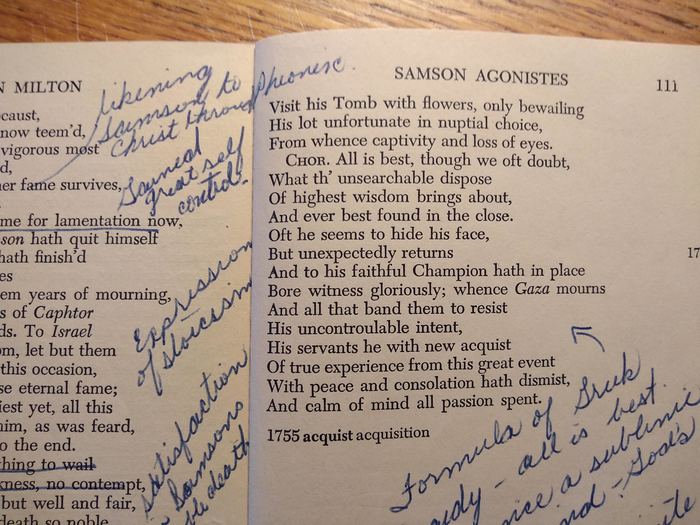 N MILTON
caust,
now teem'd,
vigorous most
d,
er fame survives,
me for lamentation now,
son hath quit himself
hath finish'd
es
em years of mourning,
s of Caphtor
ds. To Israel
om, let but them
this occasion,
se eternal fame;
iest yet, all this
him, as was feared,
o the end.
thing to wail
kness, no contempt,
but well and fair,
death so noble
likening
Samson to
Christ through Pheonexe.
Gained
great self
control.
Expression
of stoicism
Satisfaction
Samsons
ble death
SAMSON AGONISTES 111
Visit his Tomb with flowers, only bewailing
His lot unfortunate in nuptial choice,
From whence captivity and loss of eyes.
CHOR. All is best, though we oft doubt,
What th' unsearchable dispose
Of highest wisdom brings about,
And ever best found in the close.
Oft he seems to hide his face,
But unexpectedly returns 17
And to his faithful Champion hath in place
Bore witness gloriously; whence Gaza mourns
And all that band them to resist
His uncontroulable intent,
His servants he with new acquist
Of true experience from this great event
With peace and consolation hath dismist,
And calm of mind all passion spent.
1755 acquist acquisition
Formula of Gruk
edy - all is best.
nce a sublime
nd - God's